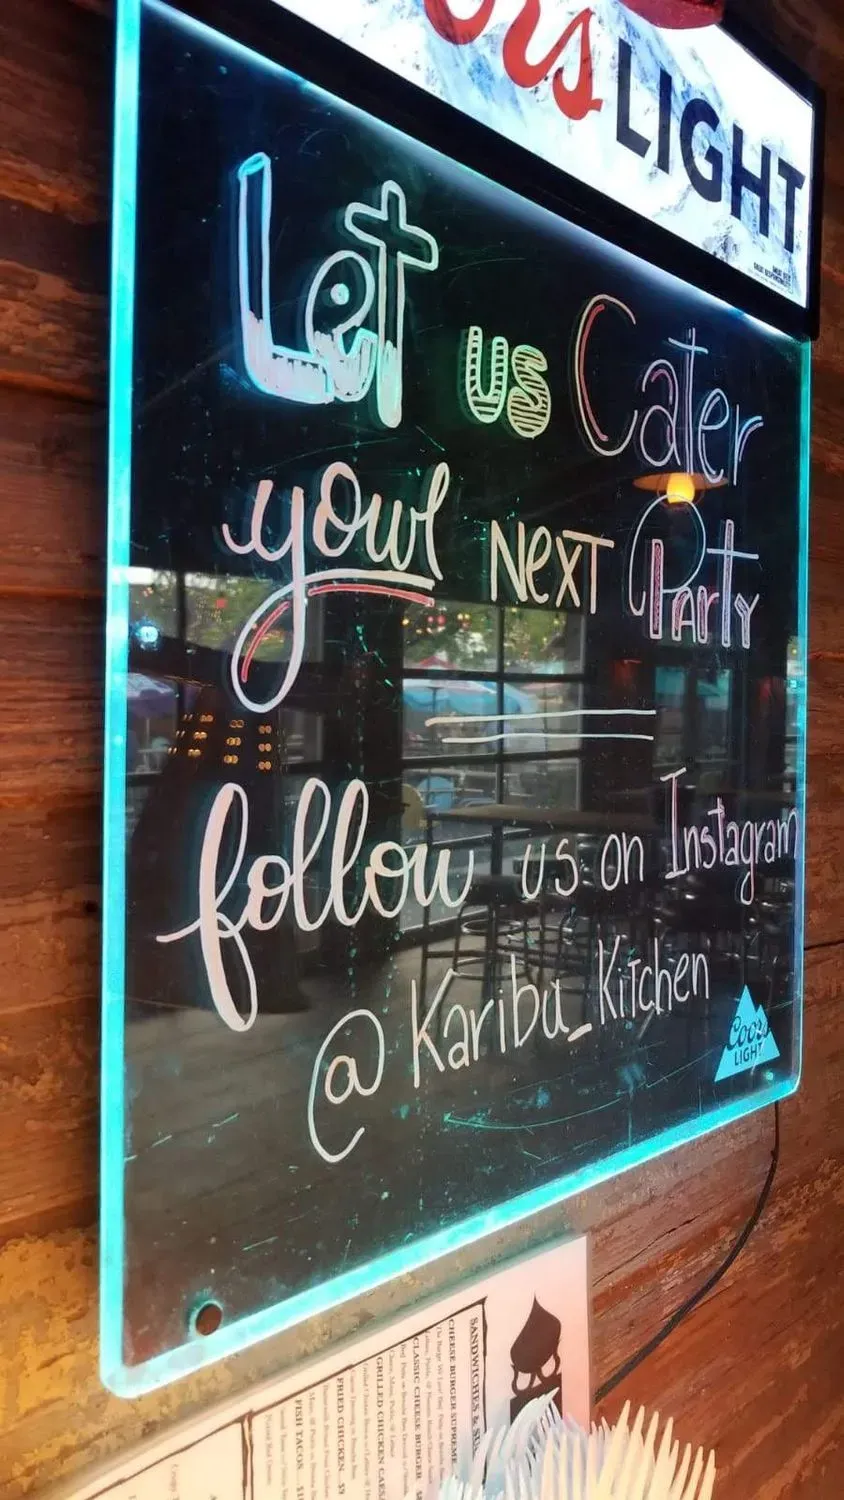 LIGHT
Let us Cater
your NEXT Party
follow us on Instagram
@Karibu_Kitchen
Coors
LIGHT
SANDWICHES &
CHEESE BURGER SUPREME
CLASSIC CHEESE BURGER
GRILLED CHICKEN CAESAR
FRIED CHICKEN $9
FISH TACOS